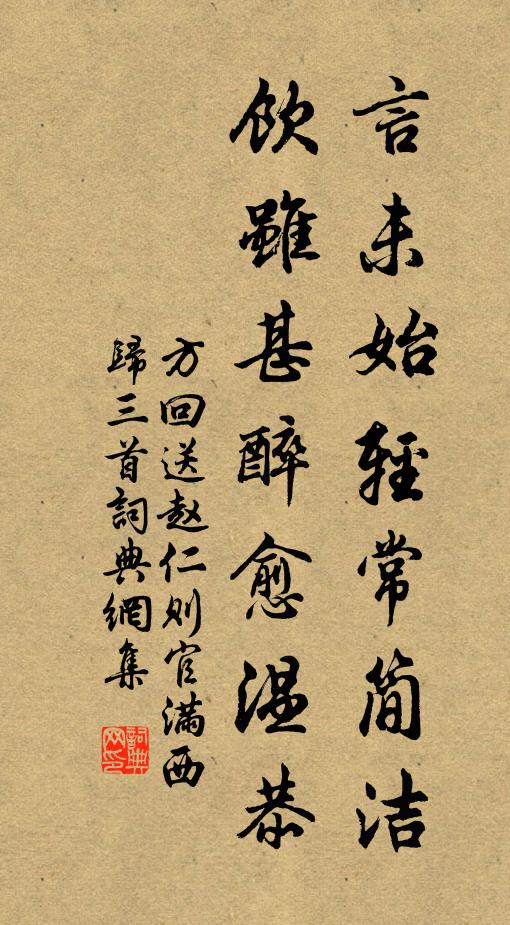 言未始轻常简洁
飲雖甚醉愈温恭
方回送赵仁则官满西
歸三首詞典網集
詞典网印